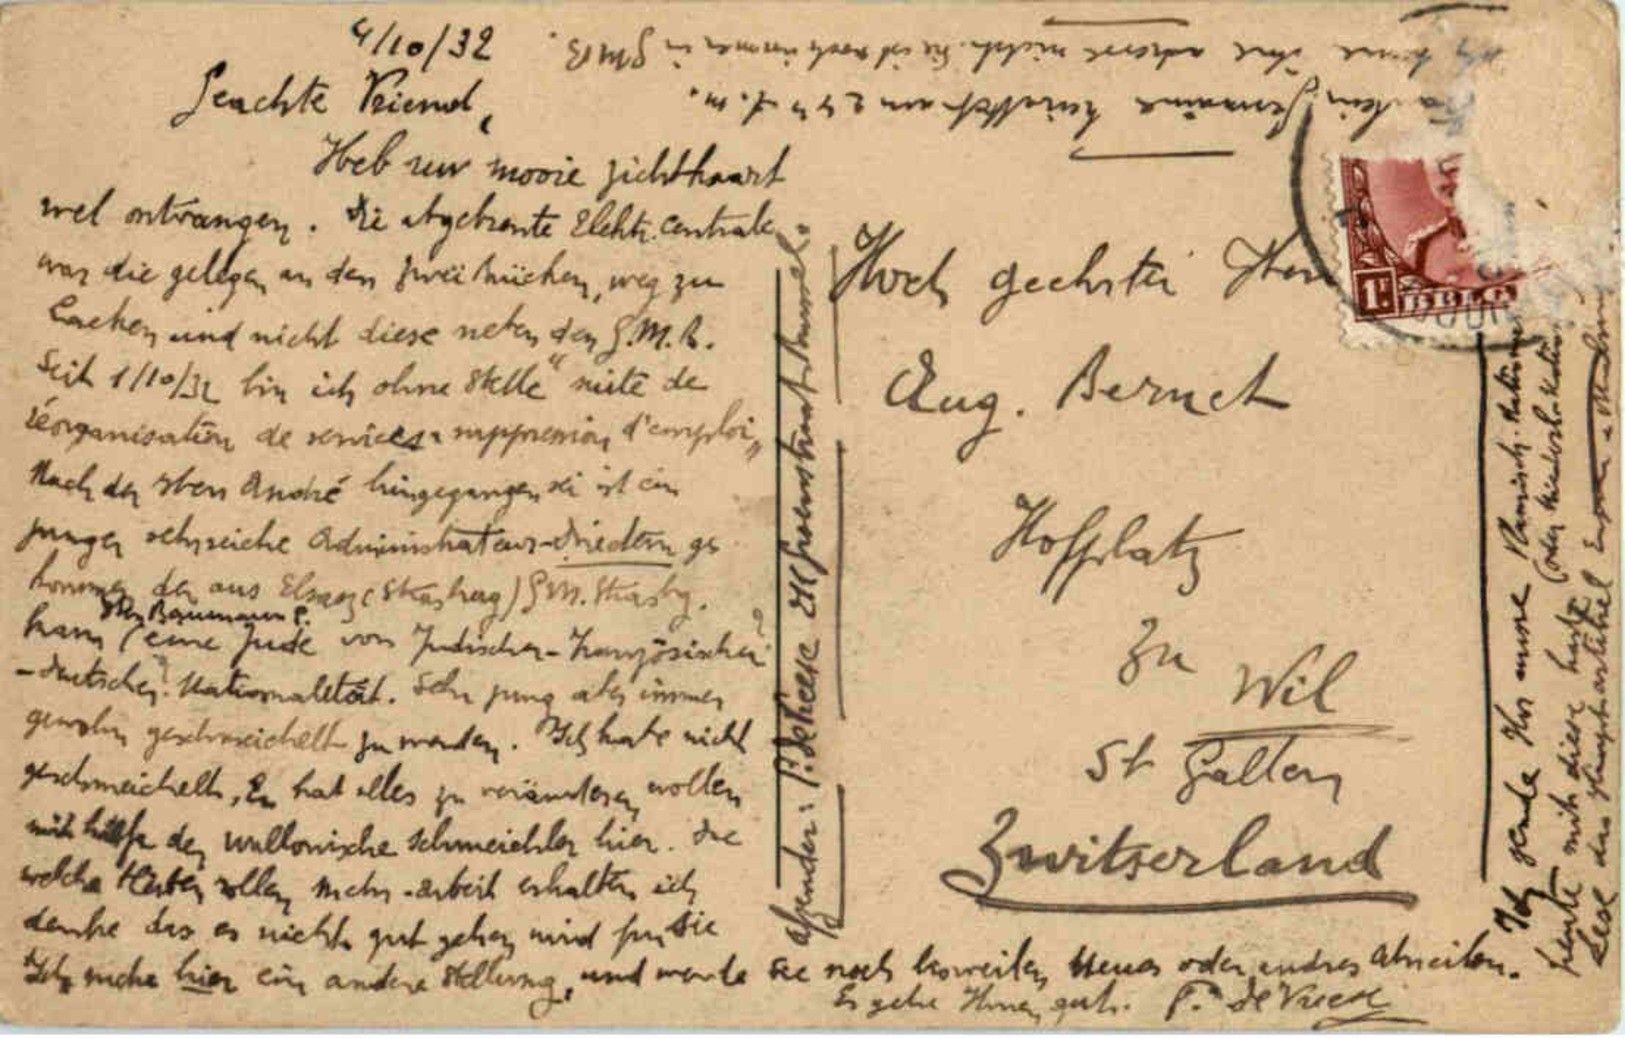 4/10/32
Geachte Vriend,
Heb uw mooie zichtkaart
wel ontvangen. Die abgebrente Elektr. Centrale
war die gelegen an den zwei brücken, weg zu
Laeken und nicht diese neben den G.M.B.
Seit 1/10/32 bin ich ohne Stelle "suite de
réorganisation de services - suppression d'emploi"
Nach der Hern André hingegangen sei ist ein
junger sehr reiche Administrateur-Driedern ge
kommen der aus Elsasz (Strasburg) G.M. Strasbg.
Hern Baumann P.
kam (eine Jude von Judischer-Französischer?
-deutscher? Nationaletät. Sehr jung aber immer
gewohn geschmeichelt zu werden. Ich habe nicht
geschmeichelt, Er hat alles zu veränderen wollen
mit hülfe der wallonische Schmeichler hier. Die
welche bleiben sollen mehr-arbeit erhalten ich
denke das es nicht gut gehen wird für Sie
Ich suche hier ein andere Stellung, und werde Sie noch bisweilen Neues oder andres schreiben.
Es gehe Ihnen gut. P. De Vreese
afzender: P. De Vreese
Hoch geehrter Herr
Aug. Bernet
Hofplatz
zu Wil
St Gallen
Zwitserland
Ich sende Ihr unsre
heute mit diese karte (oder
Lese das Hauptartikel
Fraülein Germaine am 24
ich kenne ihre adresse nicht. Sie ist noch immer in G.M.B.
1F